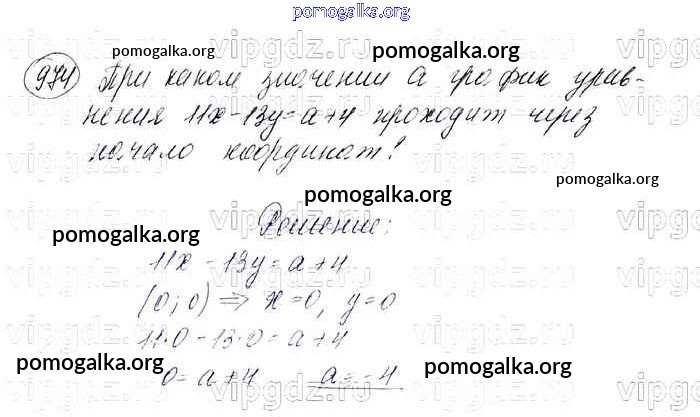 pomogalka.org
pomogalka.org pomogalka.org
974 При каком значении а график урав-
нения 11x - 13y = a + 4 проходит через
начало координат?
pomogalka.org
pomogalka.org
Решение:
pomogalka.org
11x - 13y = a + 4
(0; 0) ⇒ x = 0, y = 0
11·0 - 13·0 = a + 4
pomogalka.org pomogalka.org
0 = a + 4 a = -4
pomogalka.org
vipgdz.ru vipgdz.ru vipgdz.ru